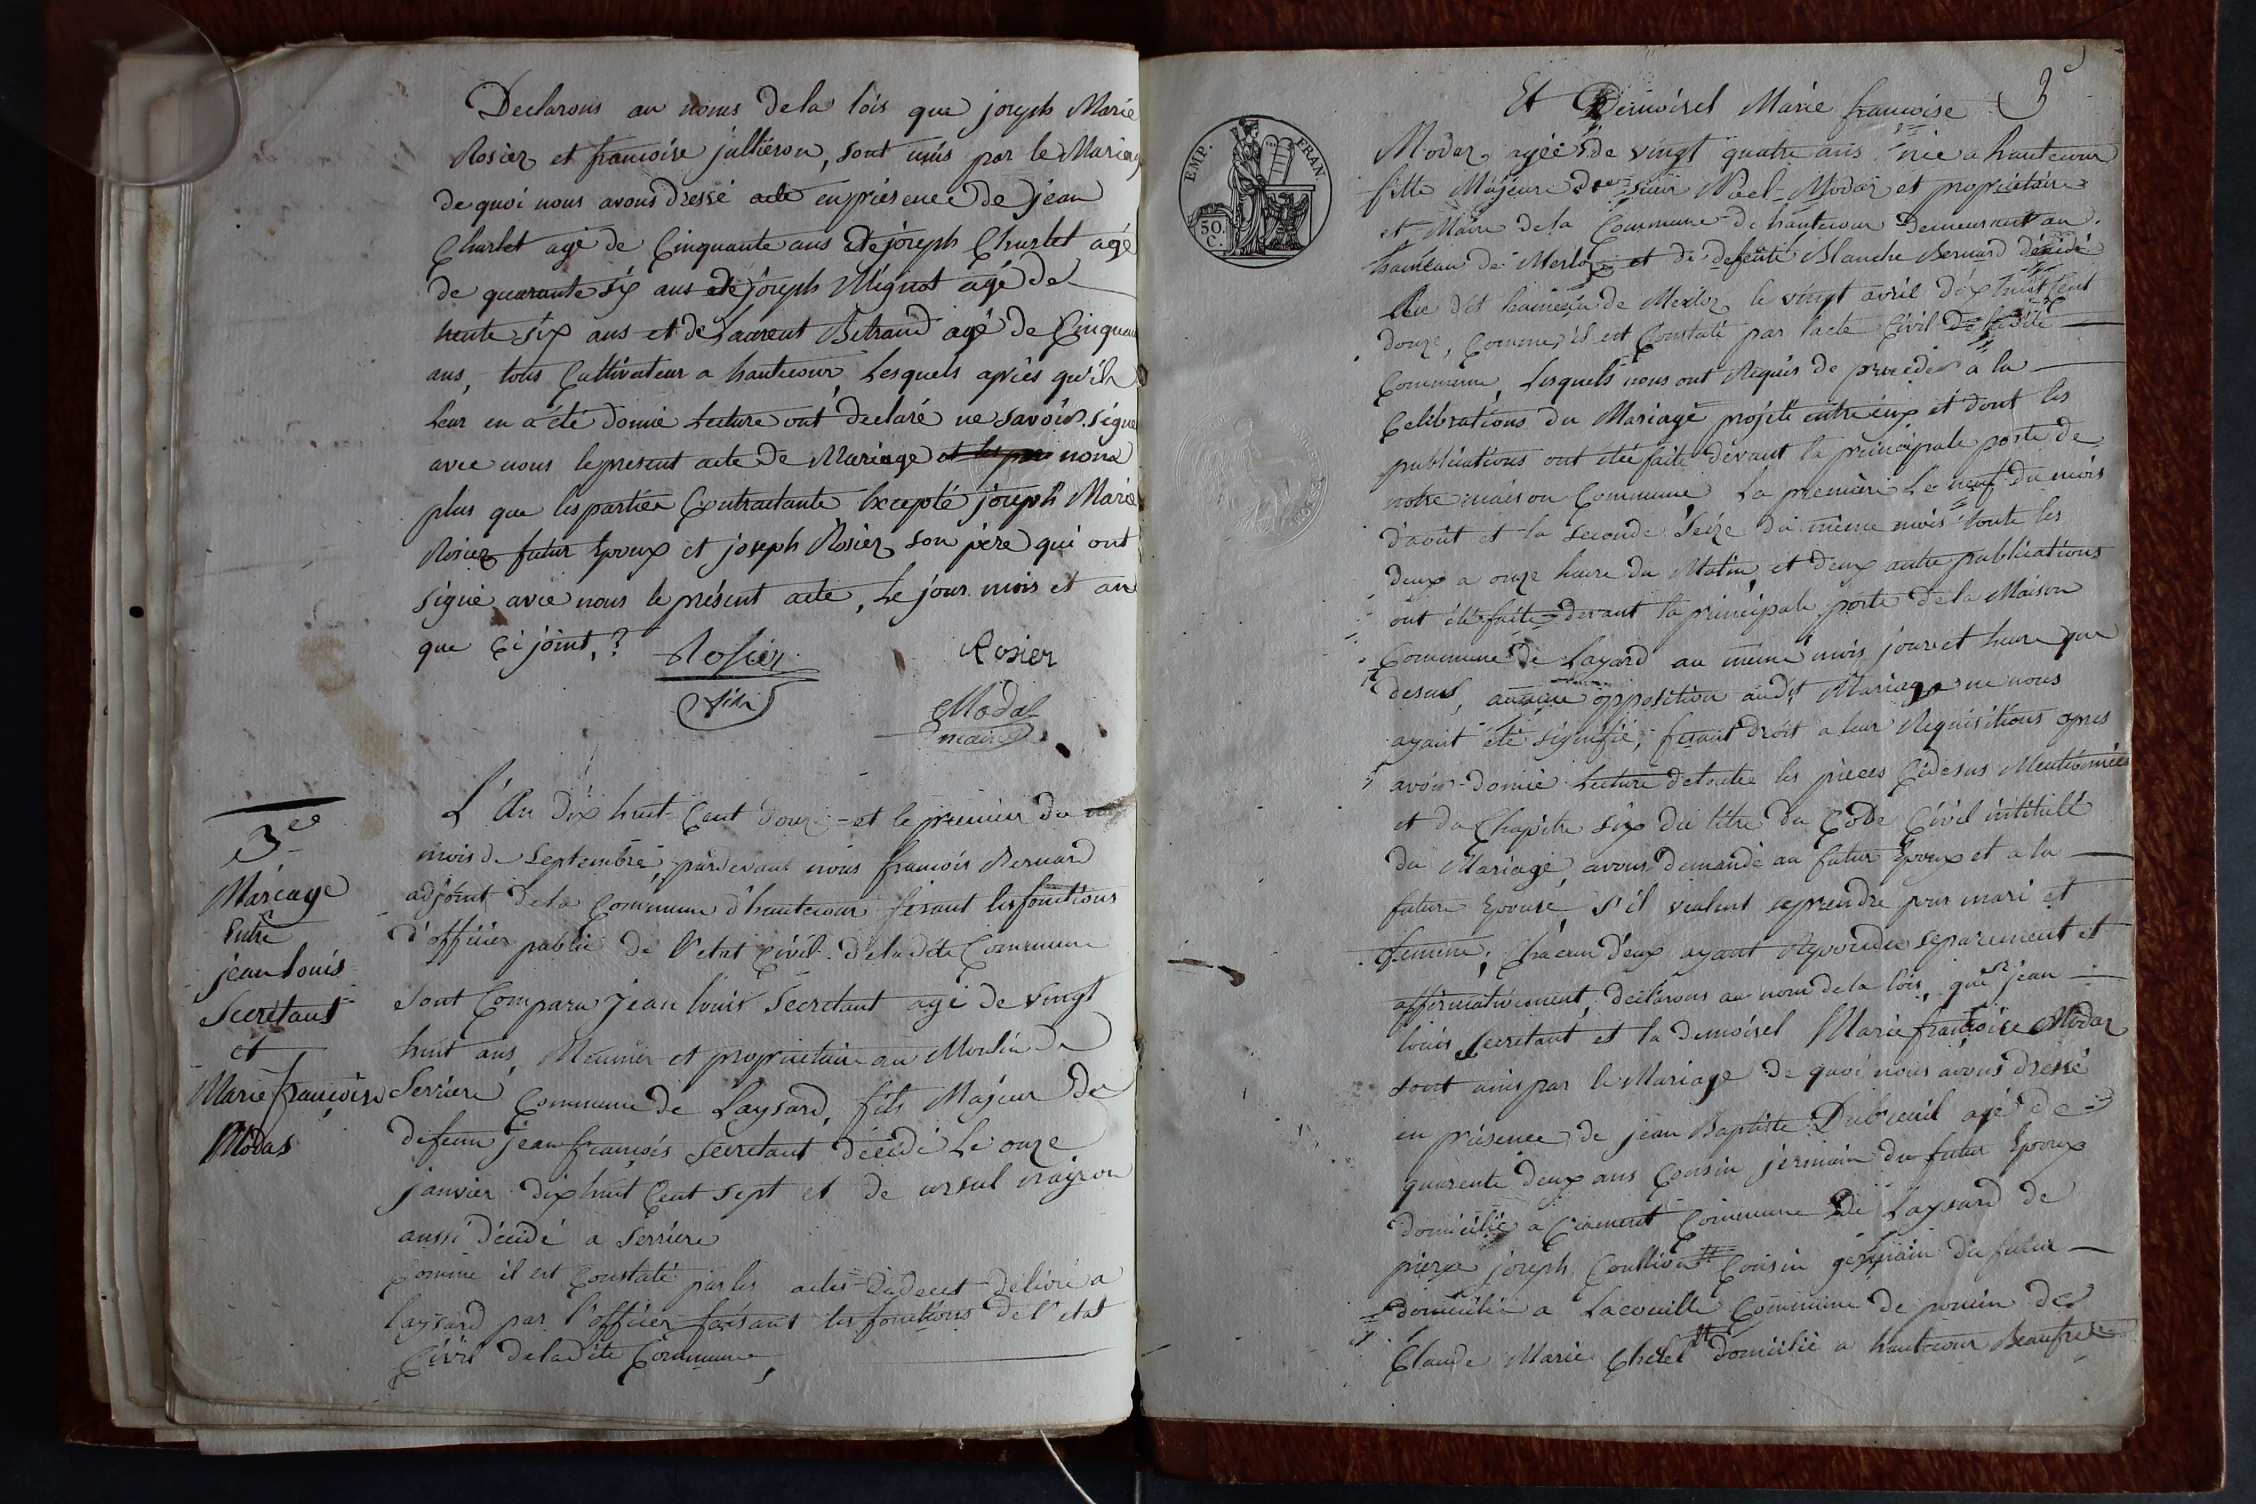 Declarons au noms de la lois que joseph Marie
Rosier et francoise jullieron, sont unis par le Mariag
de quoi nous avons dressé acte en présence de jean
Charlet agé de Cinquante ans et de joseph Charlet agé
de quarante six ans et de joseph Mignot agé de
trente six ans et de Laurent Betrand agé de Cinquan
ans, tous Cultivateur a hautecour, Lesquels après qu'il
Leur en a été donné Lecture ont declaré ne savoir signe
avec nous le present acte de Mariage non
plus que les partie Contractante Excepté joseph Marie
Rosier futur Epoux et joseph Rosier son père qui ont
signé avec nous le présent acte, Le jour mois et an
que Ci joint,
Rosier Rosier
fils Modas
maire
3e
Mariage
Entre
jean louis
Secretant
et
Marie françoise
Modas
L'An dix huit Cent douze et le premier du
mois de Septembre, pardevant nous francois Bernard
adjoint de la Commune d'hautecour fesant les fonctions
d'officier public de l'etat Civil de la dite Commune
sont Comparu jean louis Secretant agé de vingt
huit ans, Meunier et proprietaire au Moulin de
Serriere Commune de Laysard, fils Majeur de
defeun jean francois Secretant décédé Le onze
janvier dix huit Cent sept et de ursul
aussi décédé a Serriere
Comme il est Constaté par les actes de deces délivré a
laysard par l'officier faisant les fonctions de l'etat
Civil de la dite Commune,
3
Et Demoisel Marie francoise
Modas, agée de vingt quatre ans née a hautecour
fille Majeure de sieur Noel Modas et propriétaire
et Maire de la Commune de hautecour Demeurant au
hameau de Merloz et de defente Blanche Bernard décédé
Au dit hameau de Merloz le vingt avril dix huit Cent
douze, Comme il est Constaté par l'acte Civil de la dite
Commune, Lesquels nous ont Requis de proceder a la
Celebrations du Mariage projeté entre eux et dont les
publications ont été faite devant la principale porte de
notre maison Commune La première Le neuf du mois
d'aoüt et la seconde Seize du même mois toute les
deux a onze heure du Matin, et deux autre publications
ont été faite devant la principale porte de la Maison
Commune de Laysard au même mois jour et heure que
desus, aucune opposition au dit Mariage ne nous
ayant été signifié, fesant droit a leur Requisitions apres
avoir donné Lecture de toute les pieces Cidesus Mentionnées
et du Chapitre six du titre du Code Civil intitulé
du Mariage, avons demandé au futur Epoux et a la
future Epouse s'il veulent se prendre pour mari et
femme, Chacun d'eux ayant Repondu separement et
affirmativement, declarons au nom de la lois, que jean
louis Secretant et la demoisel Marie francoise Modas
sont unis par le Mariage de quoi nous avons dressé
en présence de jean Baptiste Dubreuil agé de
quarente deux ans Cousin jermain du futur Epoux
domicilié a Commune de Laysard de
pierre joseph Cousin germain du futur
domicilié a Lacouille Commune de poncin de
Claude Marie domicilié a hautecour Beaufrere
EMP. FRAN.
50. C.